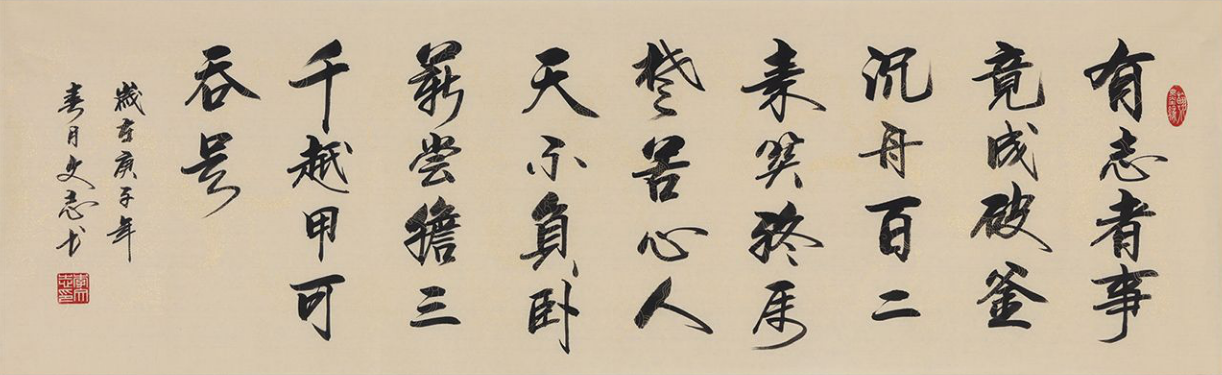 有志者事
竟成破釜
沉舟百二
秦关终属
楚苦心人
天不負卧
薪尝膽三
千越甲可
吞吴
歲在庚子年
春月文志书